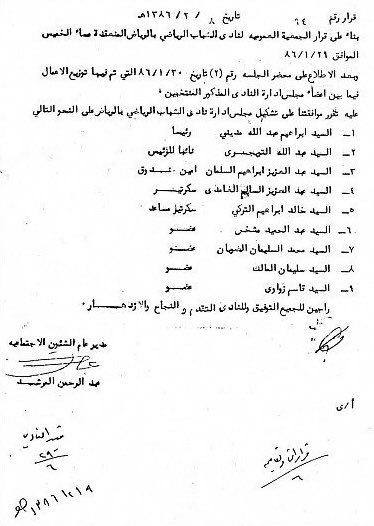 قرار رقم ٦٤ تاريخ ٨ / ٢ / ١٣٨٦هـ
بناء على قرار الجمعية العموميه لنادى الشباب الرياضي بالرياض المنعقدة مساء الخميس
الموافق ٨٦/١/٢٩
وبعد الاطلاع على محضر الجلسه رقم (٢) تاريخ ٨٦/١/٣٠ التي تم فيها توزيع الاعمال
فيما بين اعضاء مجلس ادارة النادى المذكور المنتخبين ٠
عليه تقرر موافقتنا على تشكيل مجلس ادارة نادى الشباب الرياضي بالرياض على النحو التالي
١ــ السيد ابراهيم عبد الله عفيفي رئيسا
٢ــ السيد عبد الله التهيمرى نائبا للرئيس
٣ــ السيد عبد العزيز ابراهيم السلمان امين صندوق
٤ــ السيد عبد العزيز السالم الغامدى سكرتيـــر
٥ــ السيد خالد ابراهيم التركي سكرتير مساعد
٦ــ السيد عبد الحميد مشخص عضـــو
٧ــ السيد محمد السليمان الضهان عضـــو
٨ــ السيد سليمان المالك عضـــو
٩ــ السيد قاسم زوارى عضـــو
راجين للجميع التوفيق وللنادى التقدم و النجاح والازدهــــار ٠
مدير عام الشئون الاجتماعيه
عبد الرحمن المرشـــد
أ/ى
٢٩
٦
٦
١٣٨٦/٢/٩هـ